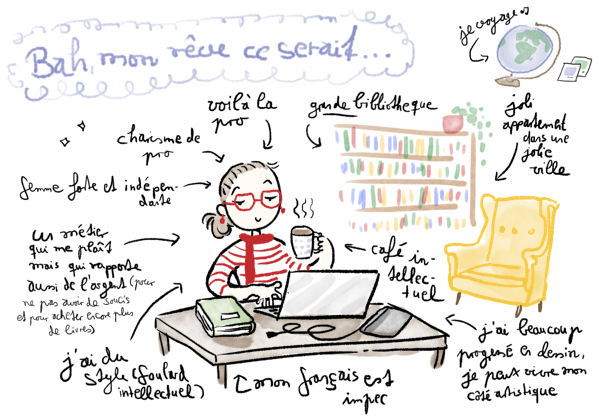 Bah, mon rêve ce serait...
je voyage
voilà la
pro
grande bibliothèque
charisme de
pro
joli
appartement
dans une
jolie
ville
femme forte et indépen-
dante
un métier
qui me plaît
mais qui rapporte
aussi de l'argent (pour
ne pas avoir de soucis
et pour acheter encore plus
de livres)
café in-
tellec-
tuel
j'ai du
style (foulard
intellectuel)
mon français est
impec
j'ai beaucoup
progressé en dessin,
je peux vivre mon
café artistique